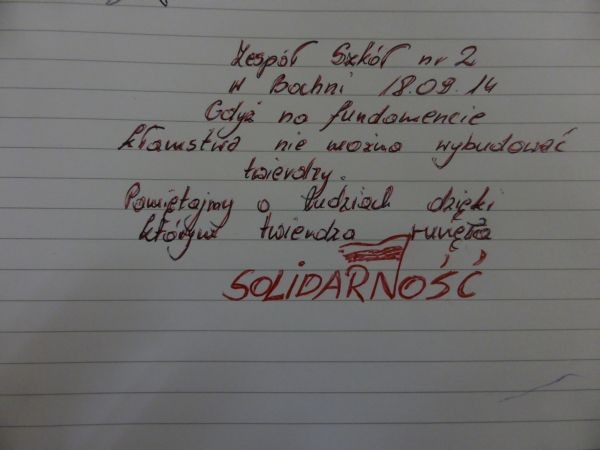 Zespół Szkół nr 2
w Bochni 18.09.14
Gdyż na fundamencie
kłamstwa nie można wybudować
twierdzy.
Pamiętajmy o ludziach dzięki
którym twierdza runęła
SOLIDARNOŚĆ